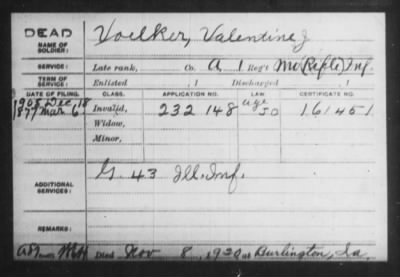 DEAD
NAME OF SOLDIER: Voelker, Valentine J
SERVICE: Late rank, Co. A, 1 Reg't Mo (Rifle) Inf.
TERM OF SERVICE: Enlisted , 1 Discharged , 1
DATE OF FILING. CLASS. APPLICATION NO. LAW CERTIFICATE NO.
1908 Dec. 18 age
1877 Mar. 6 Invalid, 232 148 50 161451
Widow,
Minor,
ADDITIONAL SERVICES: G. 43 Ill. Inf.
REMARKS:
Died Nov 8, 1930 at Burlington, Ia.